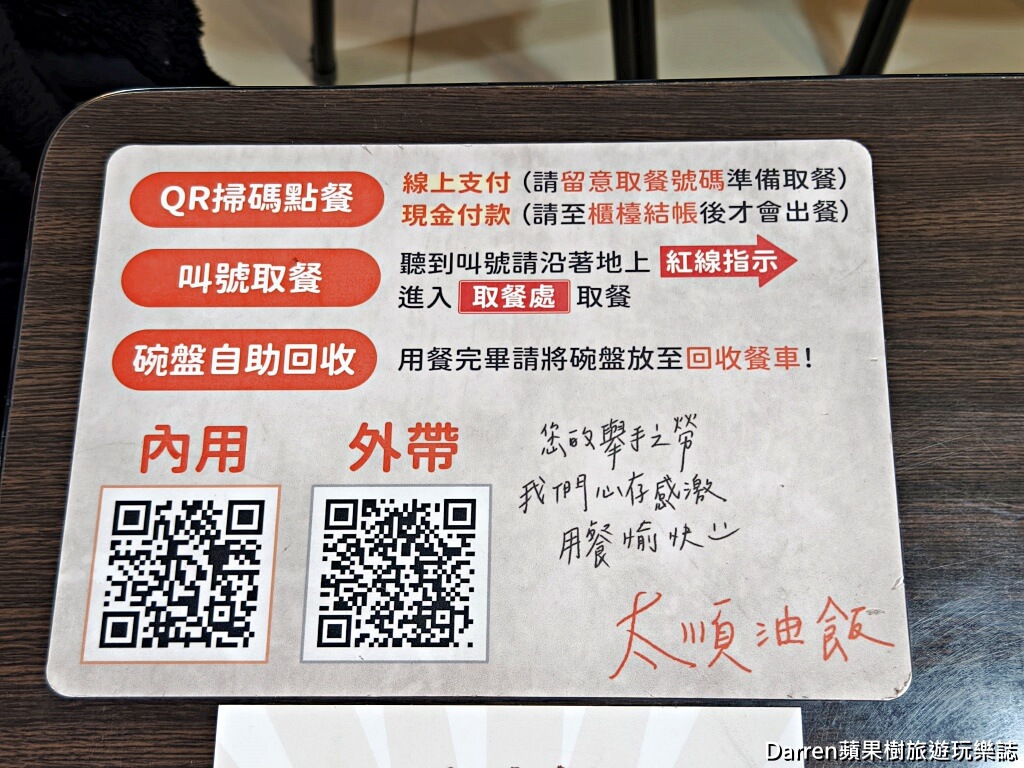 QR掃碼點餐
線上支付 (請留意取餐號碼準備取餐)
現金付款 (請至櫃檯結帳後才會出餐)
叫號取餐
聽到叫號請沿著地上 紅線指示
進入 取餐處 取餐
碗盤自助回收
用餐完畢請將碗盤放至回收餐車!
內用
外帶
您的舉手之勞
我們心存感激
用餐愉快
太順油飯
Darren蘋果樹旅遊玩樂誌